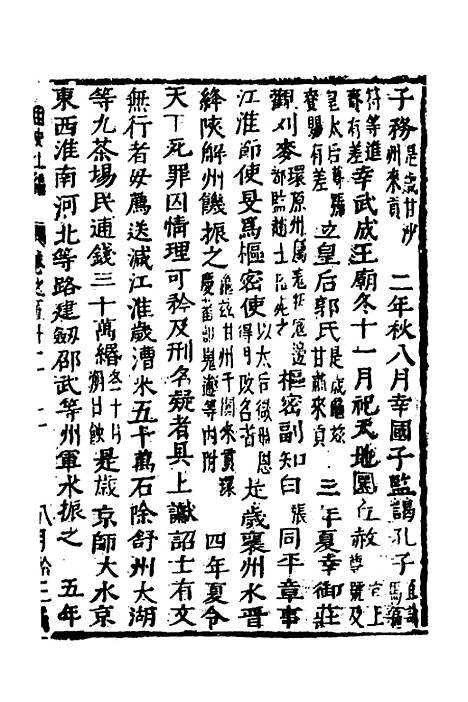 子務是歲甘沙州來貢 二年秋八月幸國子監謁孔子
等進有差幸武成王廟冬十一月祀天地圜丘赦百上尊號
皇太后尊號賚賜有差立皇后郭氏是歲龜茲甘肅來貢 三年夏幸御莊
觀刈麥環原州屬羌寇邊樞密副知白張同平章事
江淮帥使旻爲樞密使以太后微時恩得用政名者是歲襄州水晉
絳陝解州饑振之龜茲甘州于闐來貢環慶首部嵬逋等內附 四年夏令
天下死罪囚情理可矜及刑名疑者具上讞詔士有文
無行者毋薦送減江淮歲漕米五十萬石除舒州太湖
等九茶場民逋錢三十萬緡冬十月朔日蝕是歲京師大水京
東西淮南河北等路建劒邵武等州軍水振之 五年